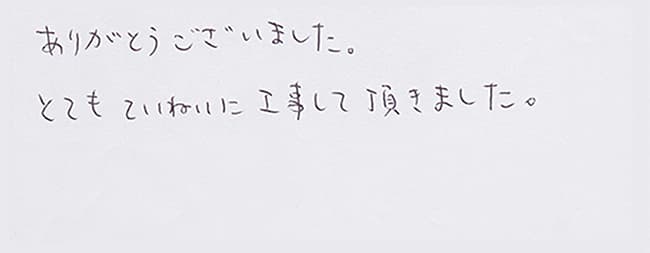 ありがとうございました。
とても ていねいに 工事して 頂きました。